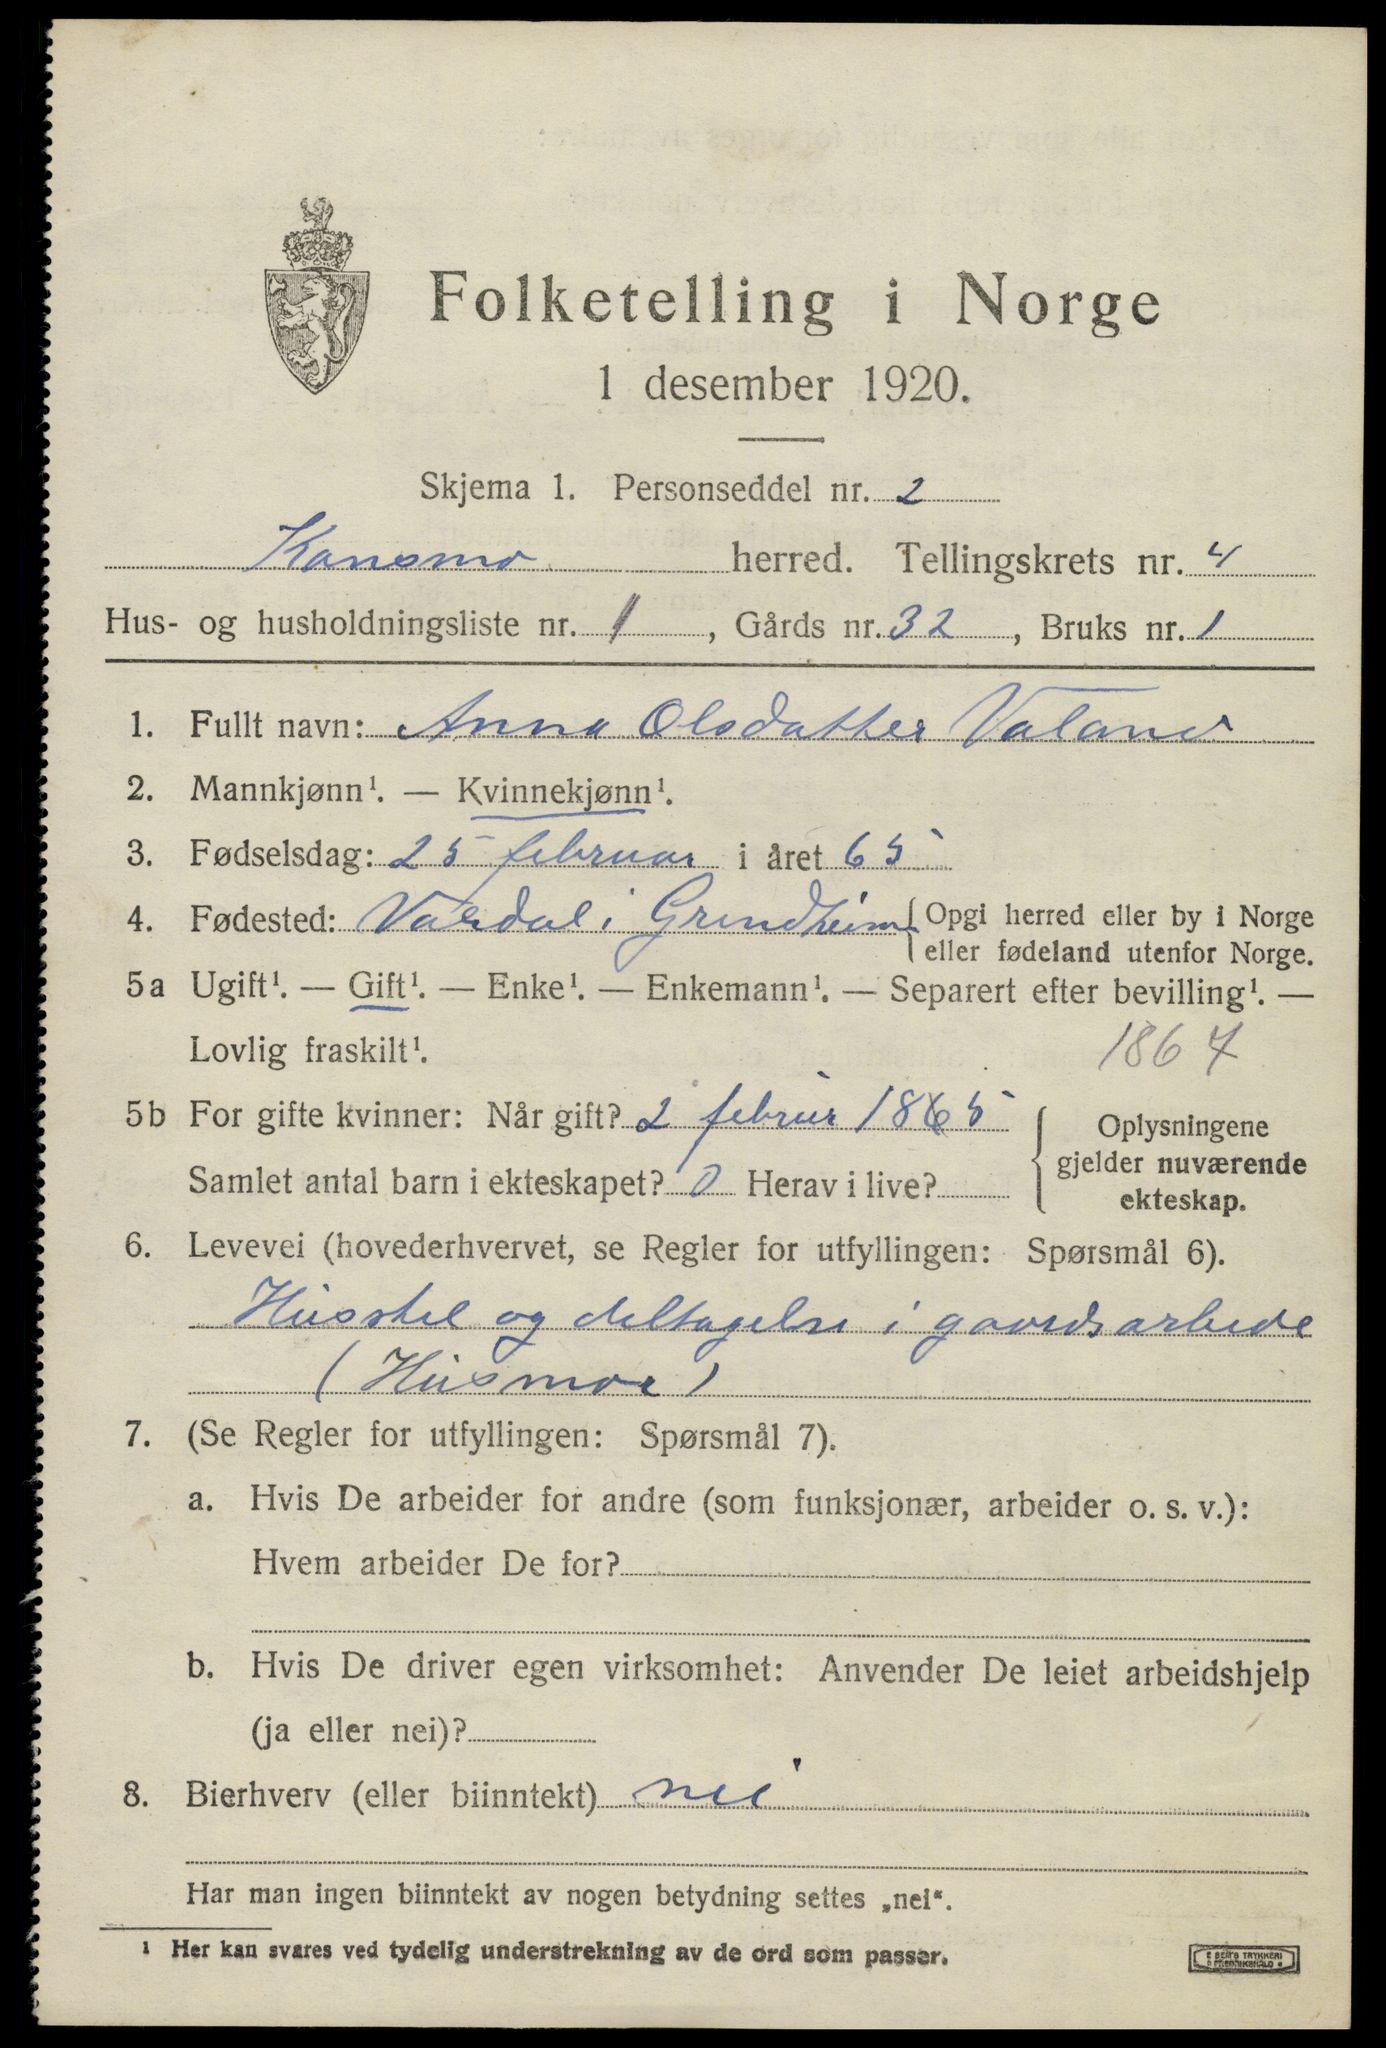 Folketelling i Norge
1 desember 1920.
Skjema 1. Personseddel nr. 2
Konsmo herred. Tellingskrets nr. 4
Hus- og husholdningsliste nr. 1, Gårds nr. 32, Bruks nr. 1
1. Fullt navn: Anna Olsdatter Valand
2. Mannkjønn¹. — Kvinnekjønn¹.
3. Fødselsdag: 25 februar i året 65
4. Fødested: Vardal i Grindheim { Opgi herred eller by i Norge
eller fødeland utenfor Norge.
5a Ugift¹. — Gift¹. — Enke¹. — Enkemann¹. — Separert efter bevilling¹. —
Lovlig fraskilt¹. 1864
5b For gifte kvinner: Når gift? 2 februir 1865 { Oplysningene
gjelder nuværende
ekteskap.
Samlet antal barn i ekteskapet? 0 Herav i live?
6. Levevei (hovederhvervet, se Regler for utfyllingen: Spørsmål 6).
Husstel og deltagelse i gaardsarbeide
(Husmor)
7. (Se Regler for utfyllingen: Spørsmål 7).
a. Hvis De arbeider for andre (som funksjonær, arbeider o. s. v.):
Hvem arbeider De for?
b. Hvis De driver egen virksomhet: Anvender De leiet arbeidshjelp
(ja eller nei)?
8. Bierhverv (eller biinntekt) nei
Har man ingen biinntekt av nogen betydning settes „nei“.
¹ Her kan svares ved tydelig understrekning av de ord som passer.